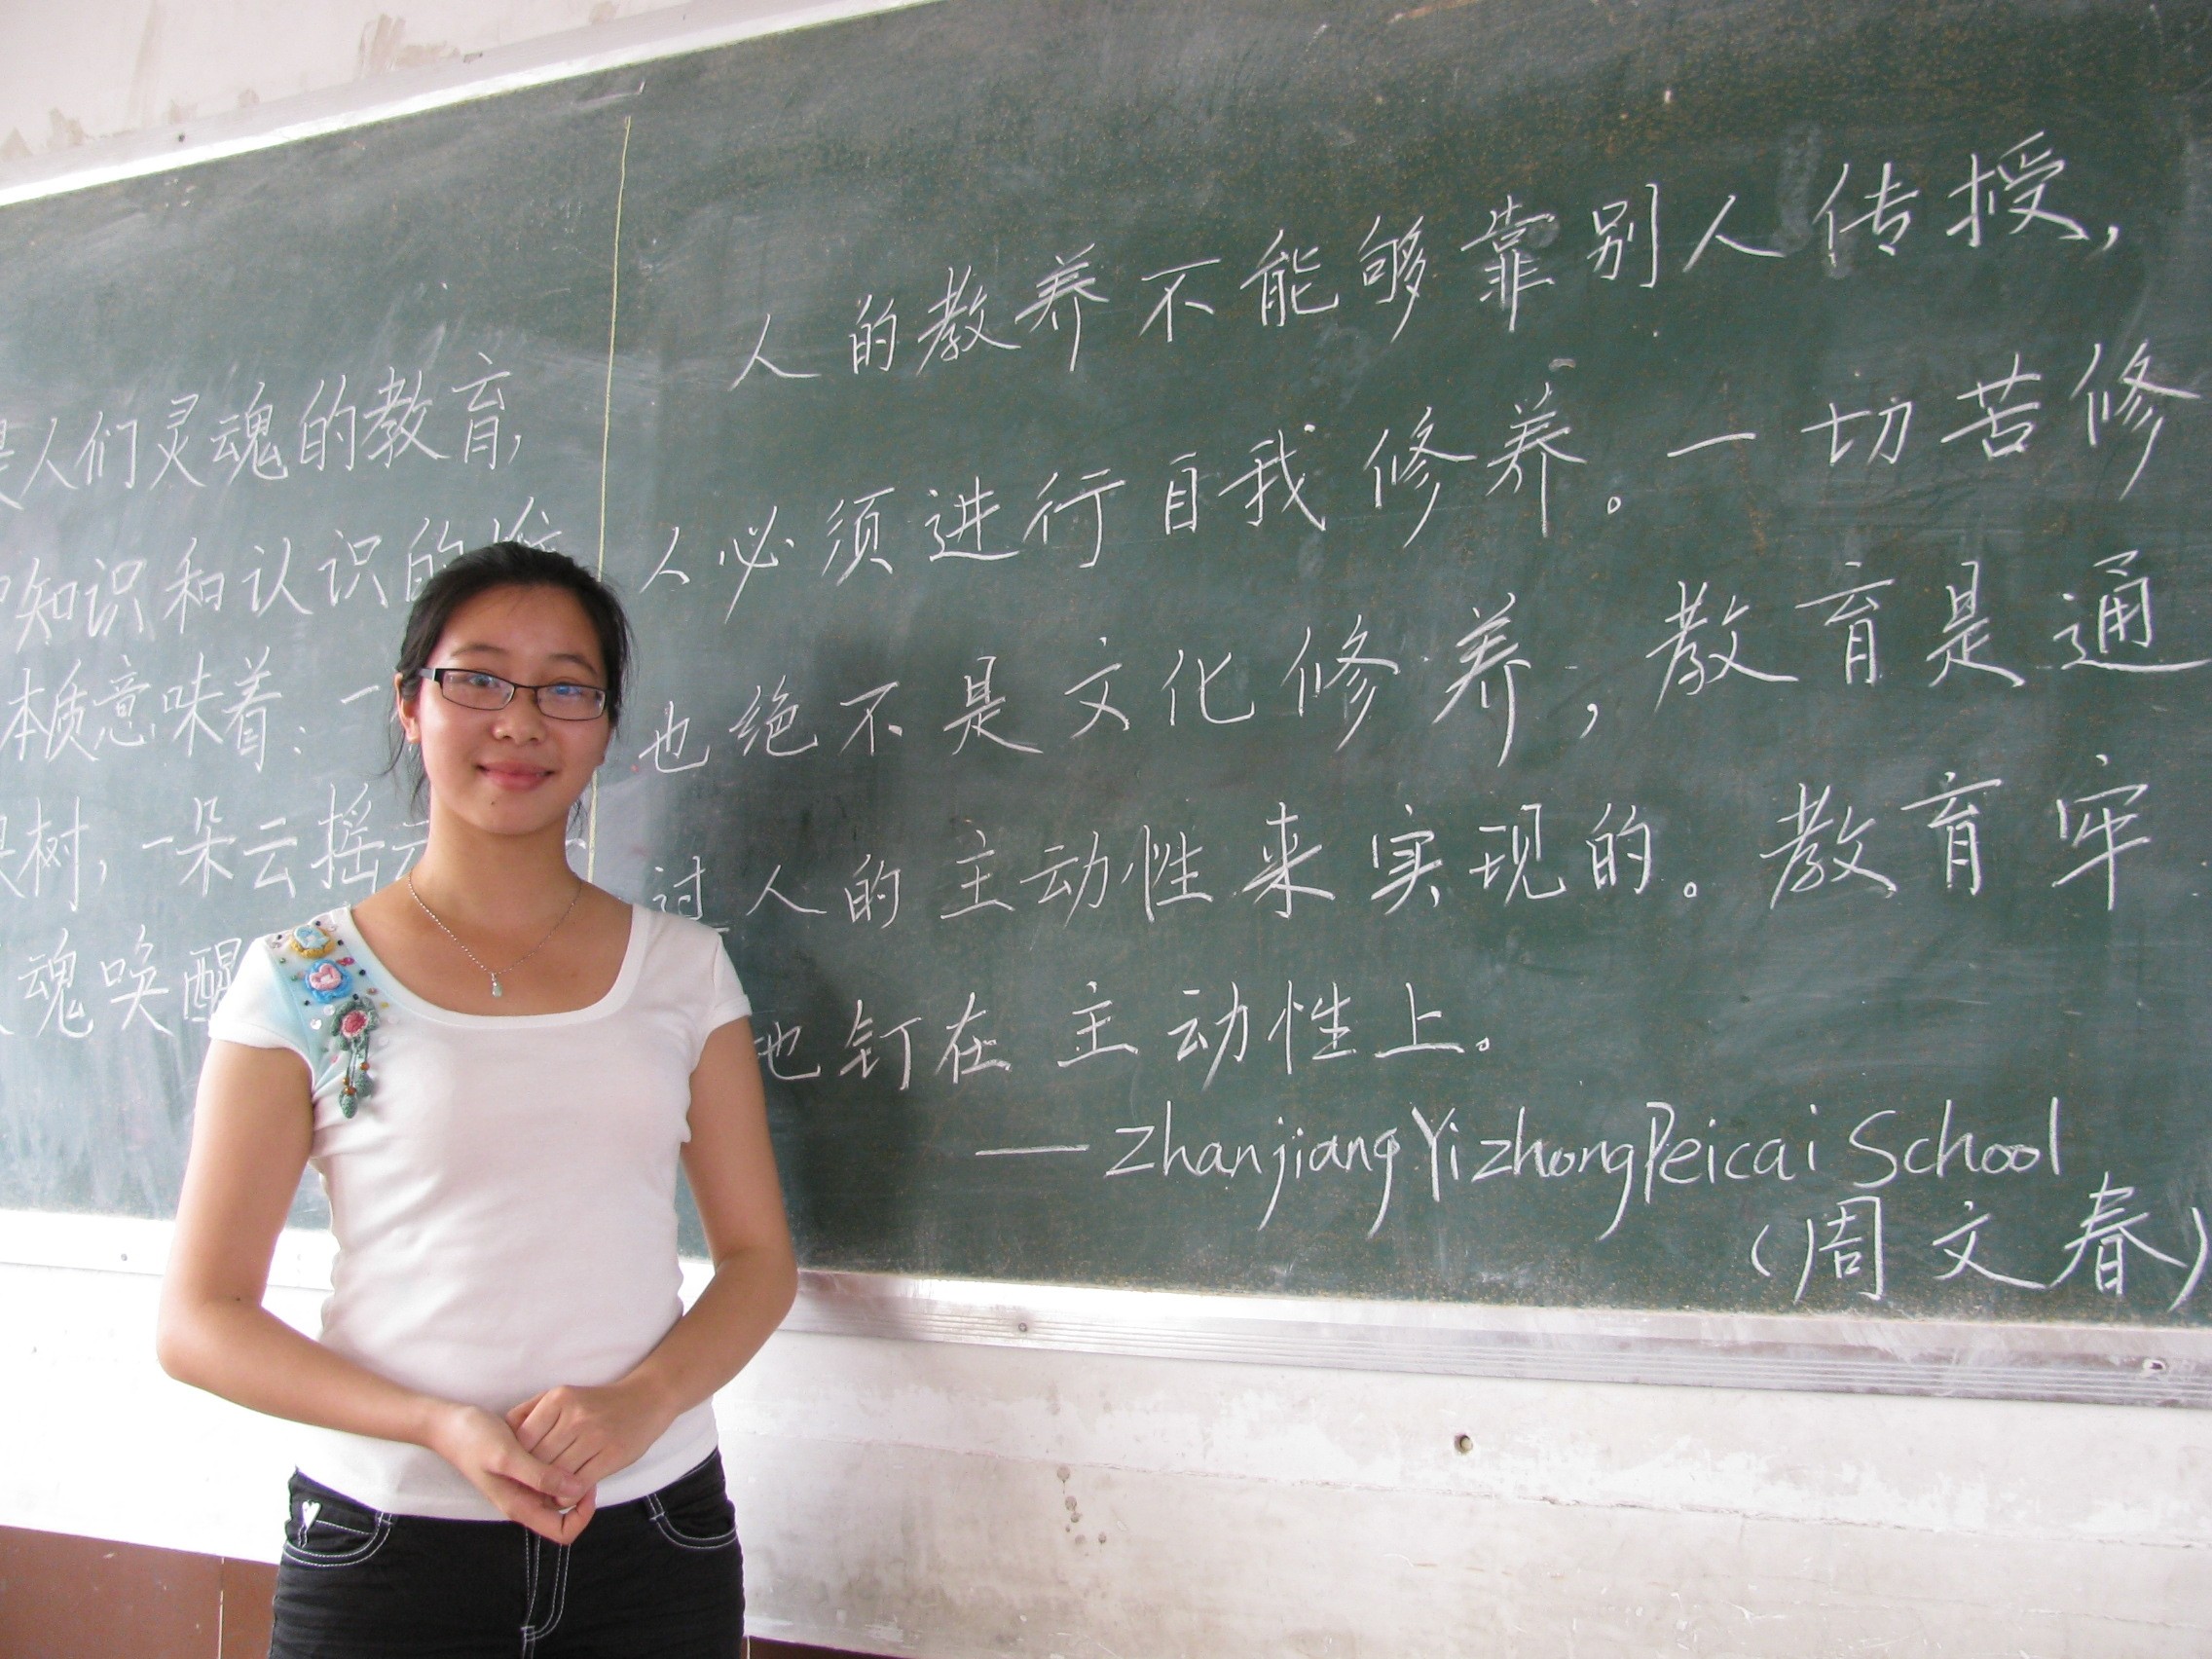 人们灵魂的教育,
知识和认识的
本质意味着:一
树,一朵云摇
魂唤醒
人的教养不能够靠别人传授,
人必须进行自我修养。一切苦修
也绝不是文化修养,教育是通
过人的主动性来实现的。教育牢
也钉在主动性上。
—Zhanjiang Yizhong Peicai School
(周文春)